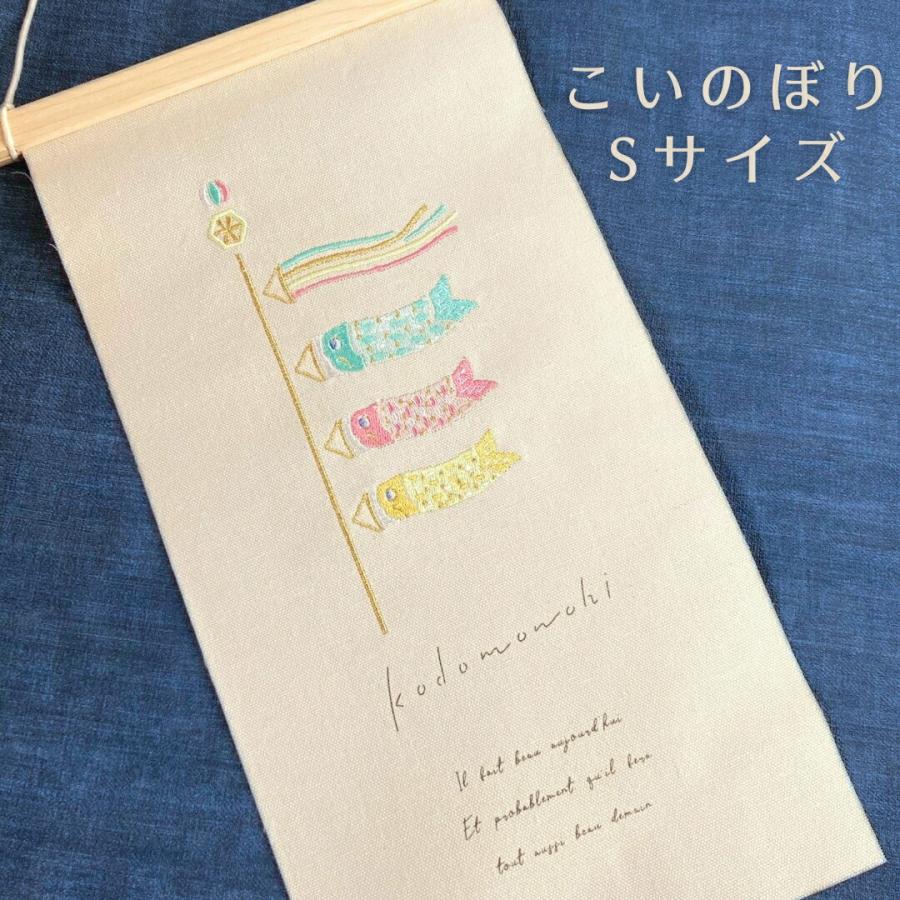 こいのぼり
Sサイズ
kodomonohi
Il fait beau aujourd'hui
Et probablement qu'il fera
tout aussi beau demain